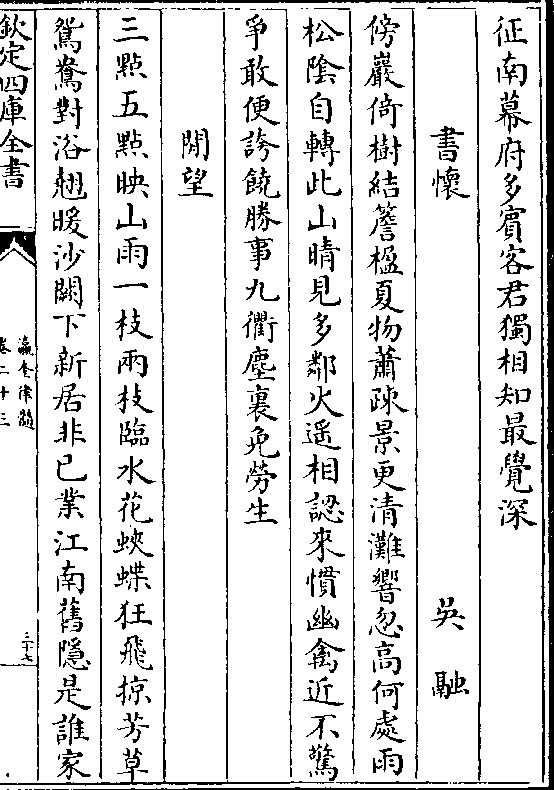 征南幕府多賓客君獨相知最覺深
書懷　吳融
傍巖倚樹結簷楹夏物蕭疎景更清灘響忽高何處雨
松陰自轉此山晴見多鄰火遥相認來慣幽禽近不驚
爭敢便誇饒勝事九衢塵裏免勞生
閒望
三點五點映山雨一枝兩枝臨水花蛺蝶狂飛掠芳草
鴛鴦對浴翹暖沙闕下新居非已業江南舊隱是誰家
欽定四庫全書
瀛奎律髓
卷二十三
三十七